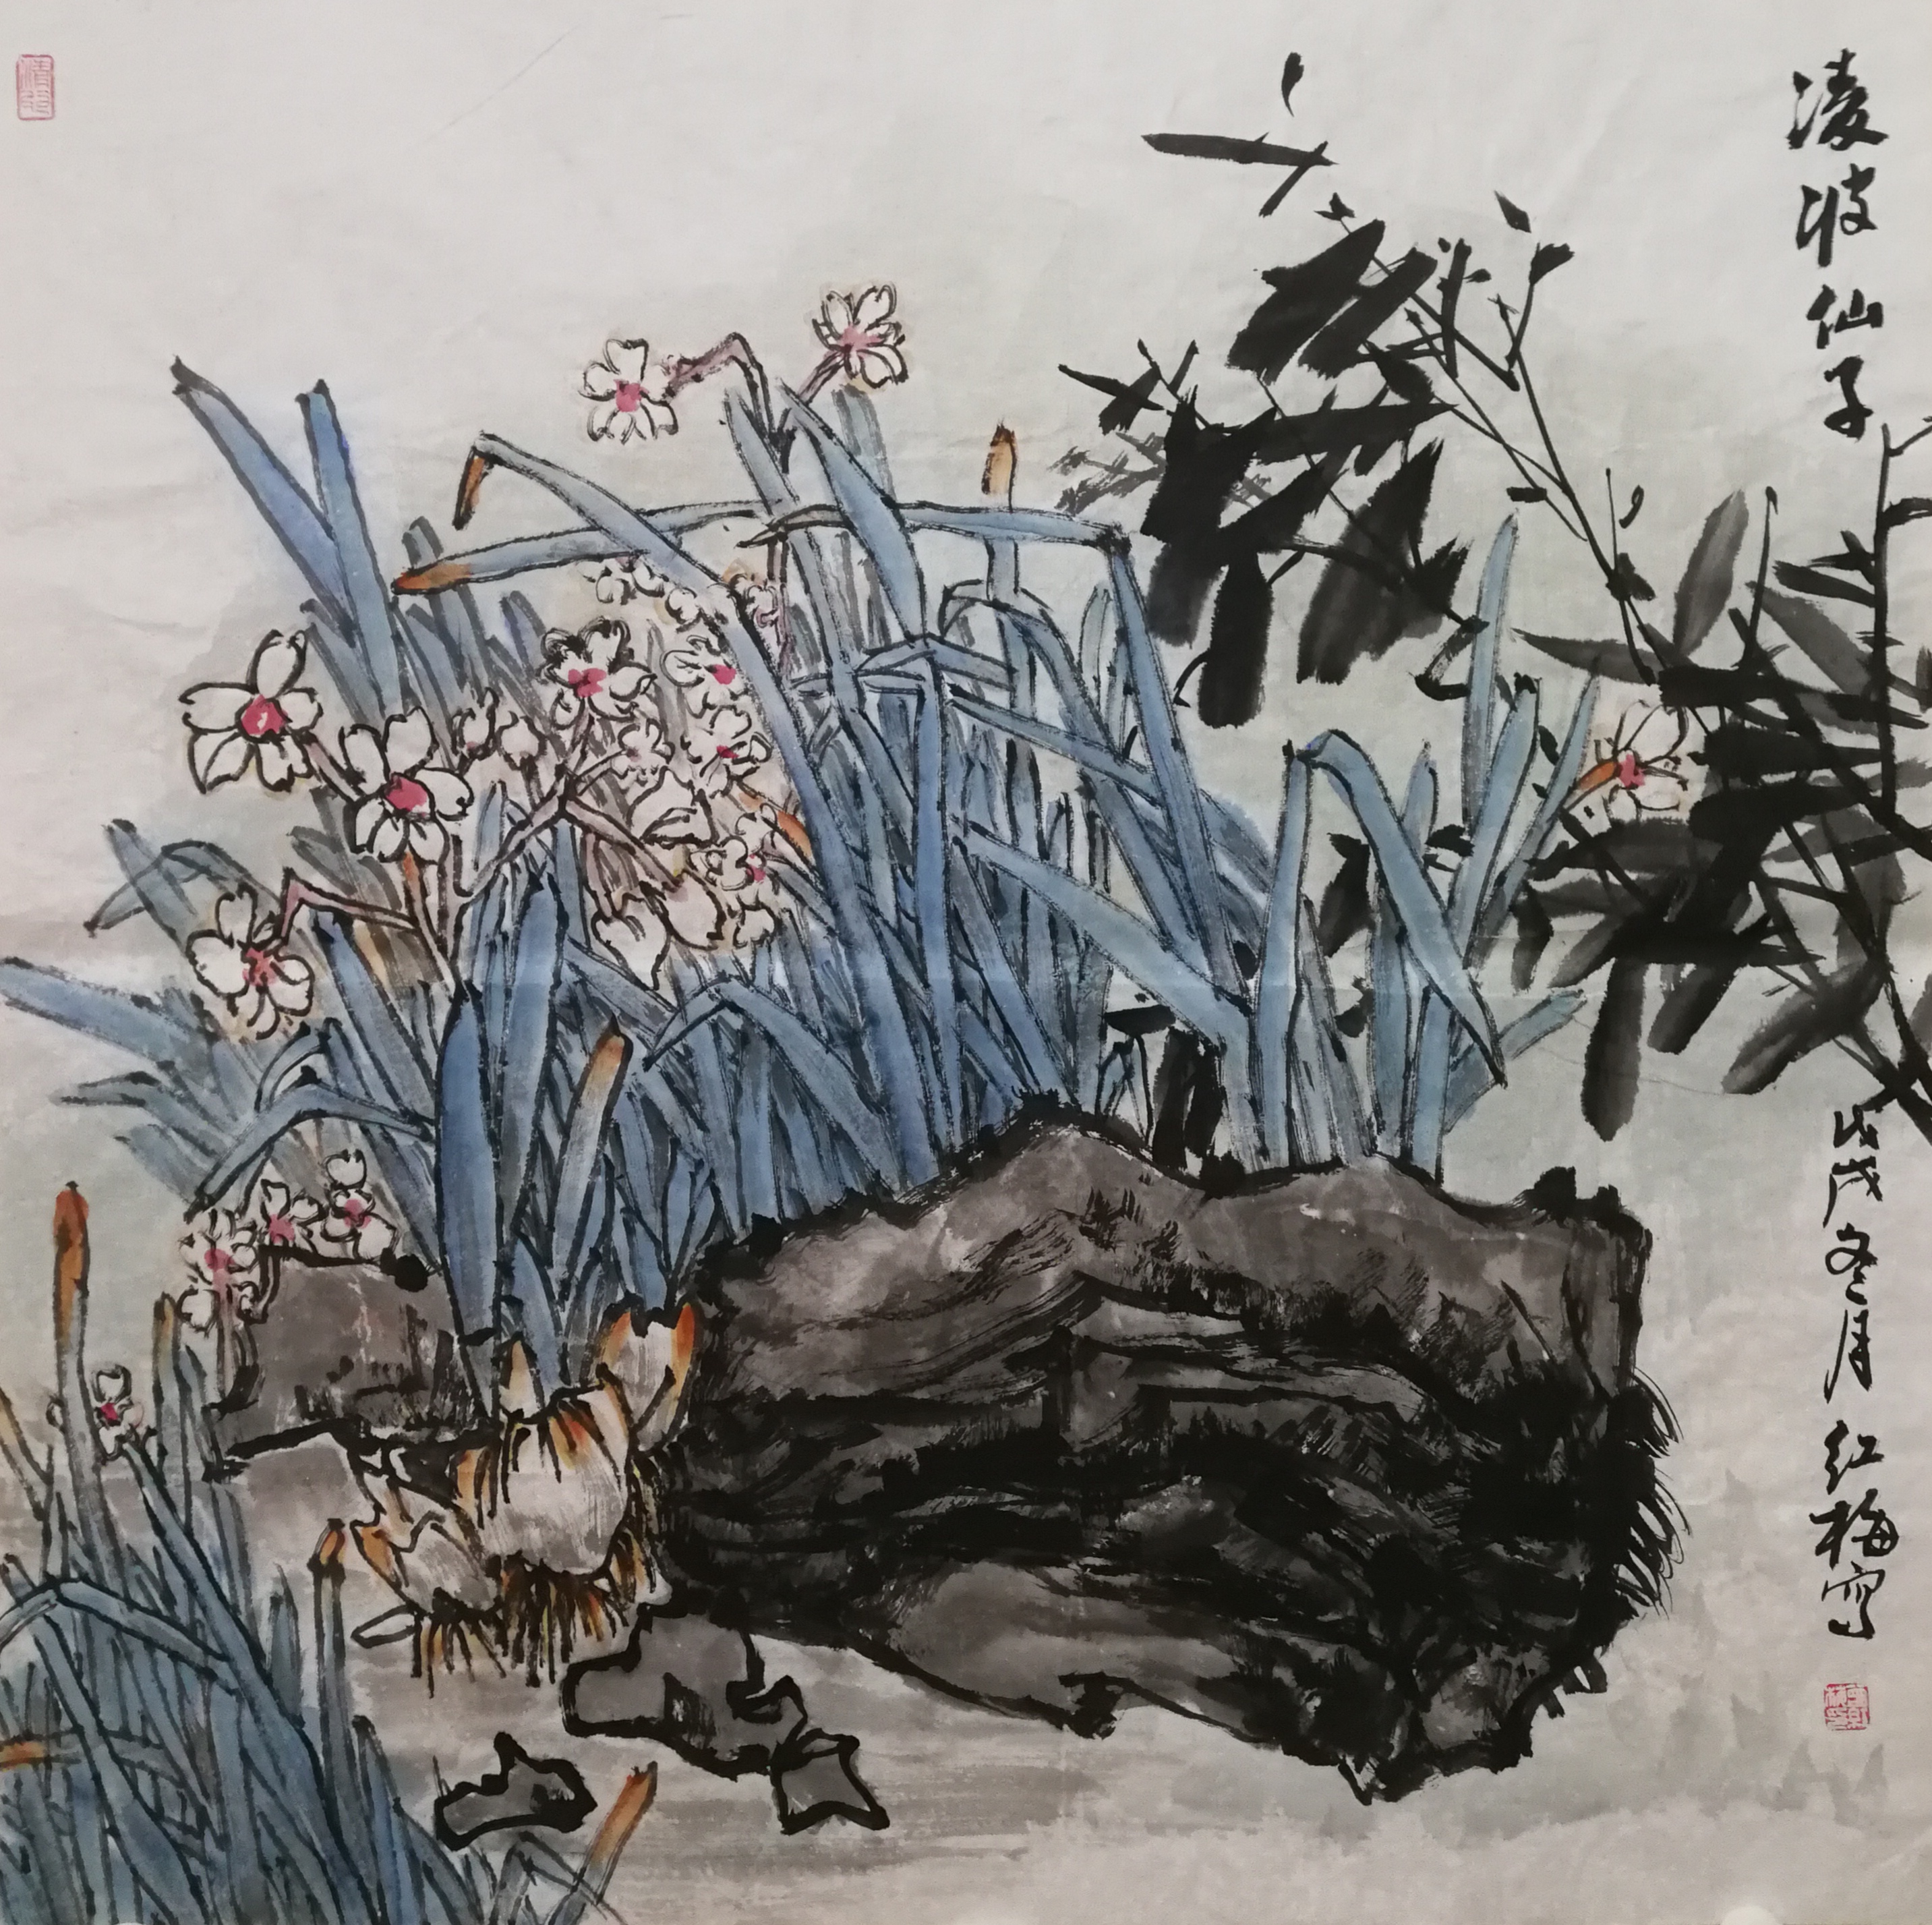 凌波仙子
戊戌冬月红梅写